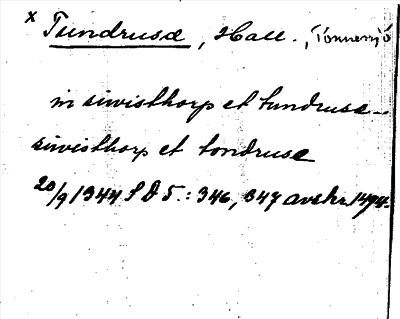 x Tundrusæ, Hall., Tönnersjö
in siwisthorp et tundruse-
siwisthorp et tondruse
20/9 1344 SD 5.: 346, 347 avskr. 1494.